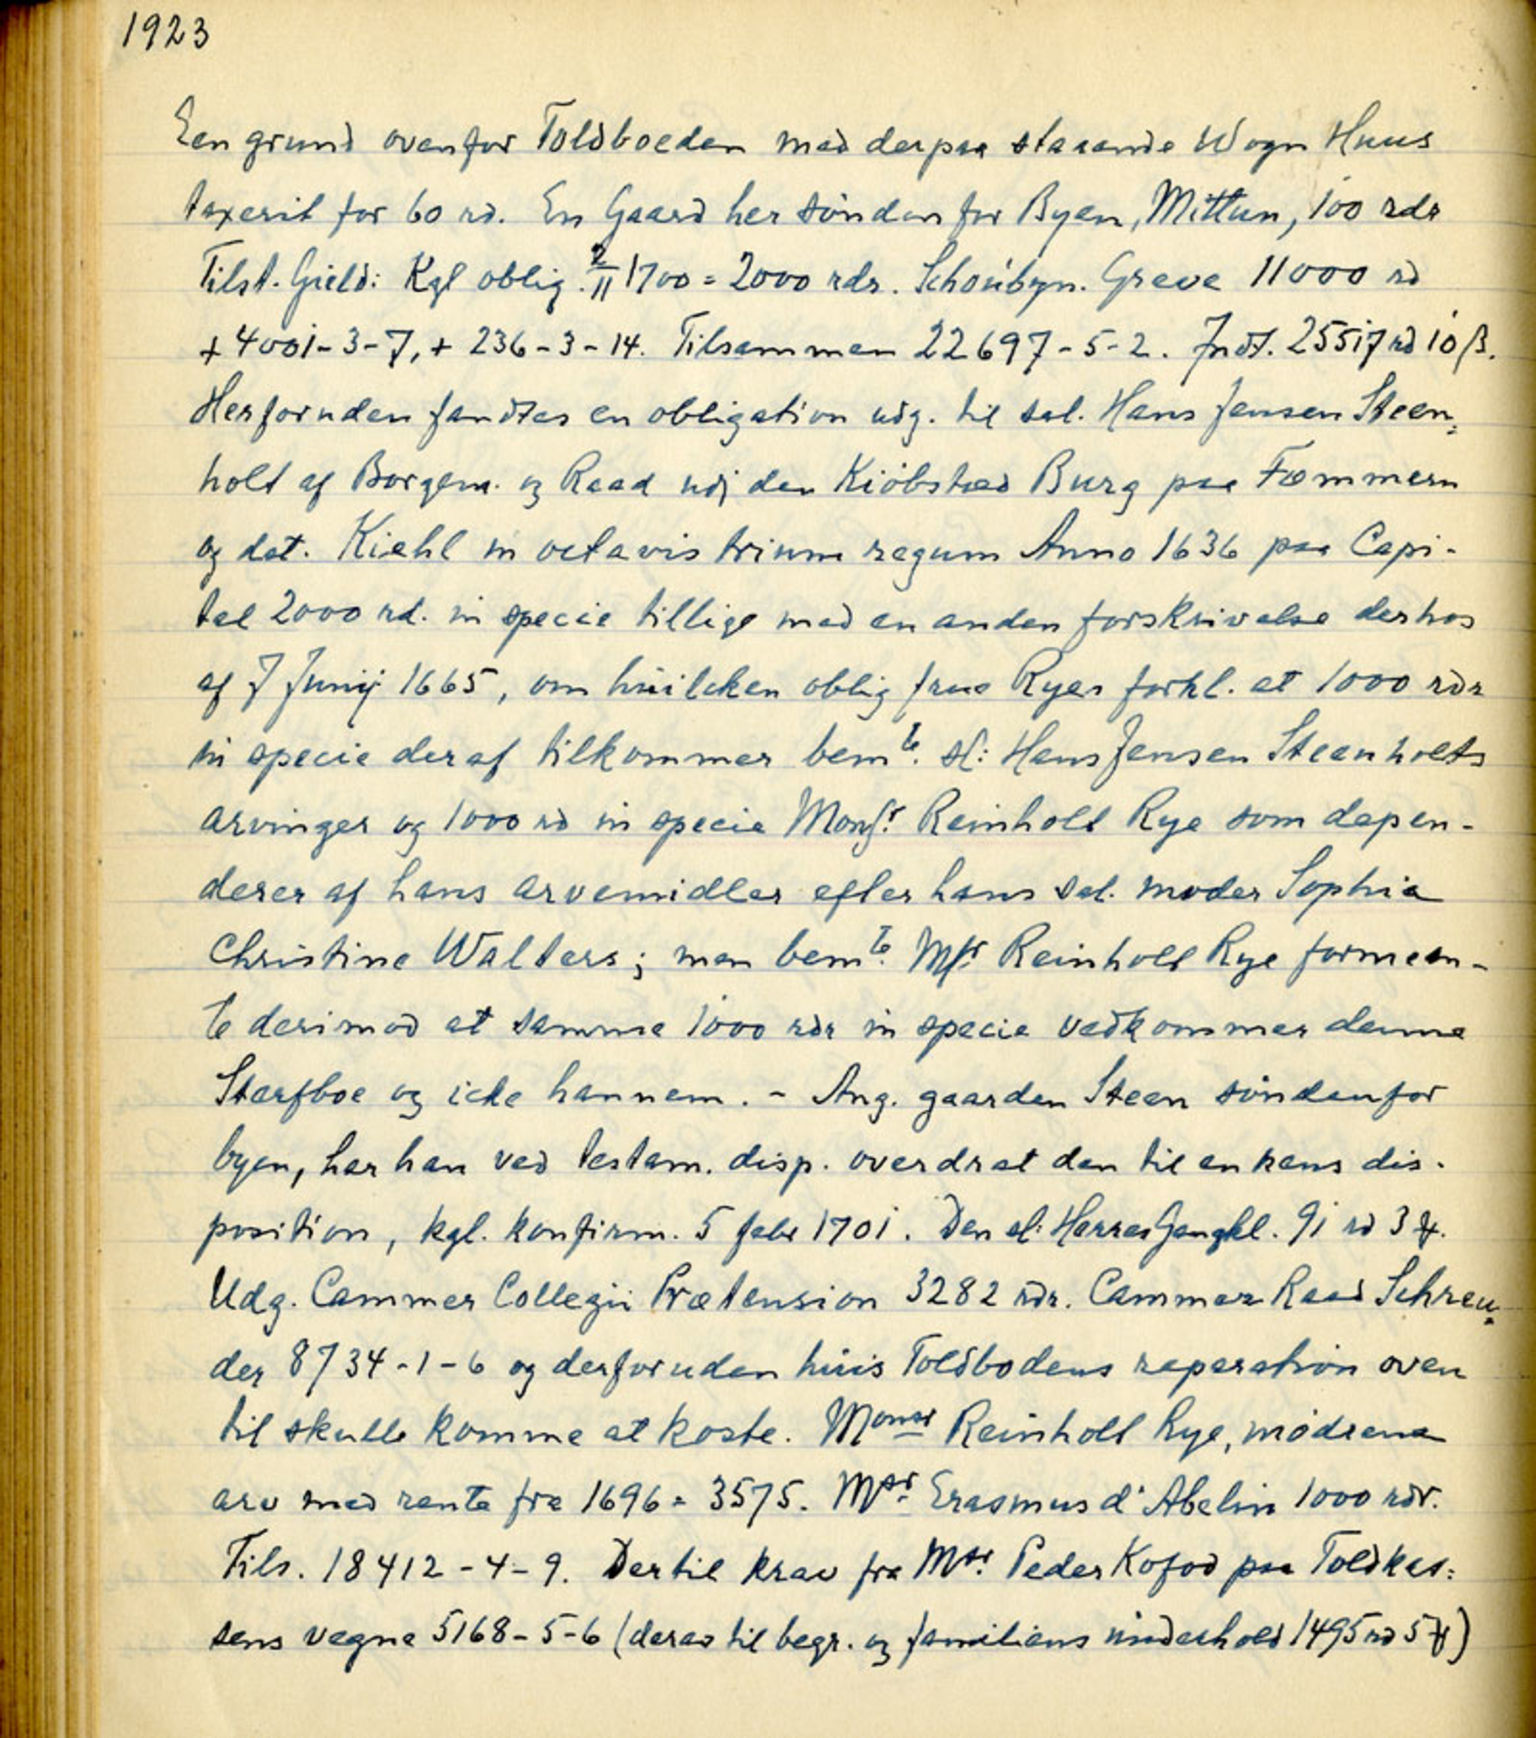 1923
Een grund ovenfor Toldboeden med derpaa staaende Wogn Huus
taxerit for 60 rd. En Gaard her sönden for Byen, Mittun, 100 rdr
Tilst. Gield: Kgl oblig. 2/11 1700 = 2000 rdr. Schoúbyn. Greve 11000 rd
+ 4001-3-7, + 236-3-14. Tilsammen 22697-5-2. Indt. 25517 rd 10 ß.
Herforuden fandtes en obligation udg. til sal. Hans Jensen Steen-
holt af Borgem. og Raad udj den Kiöbsted Burg paa Fæmmern
og dat. Kiehl in octavis trium regum Anno 1636 paa Capi-
tal 2000 rd. in specie tillige med en anden forskrivelse derhos
af 7 Junij 1665, om húilcken oblig frue Ryes forkl. at 1000 rdr
in specie deraf tilkommer bemte. sl: Hans Jensen Steenholts
arvinger og 1000 rd in specie Monsr. Reinholt Rye som depen-
derer af hans arvemidler efter hans sal. moder Sophia
Christine Walters; men bemte. Msr. Reinholt Rye formeen-
te derimod at samme 1000 rdr in specie vedkommer denne
Sterfboe og icke hannem. - Ang. gaarden Steen söndenfor
byen, har han ved testam. disp. overdrat den til enkens dis-
position, kgl. konfirm. 5 febr 1701. Den sl: Herres 91 rd 3 ₰.
Udg. Cammer Collegii Prætension 3282 rdr. Cammer Raad Schreu-
der 8734-1-6 og desforuden húis Toldbodens reparation oven
til skulle komme at koste. Monsr Reinholt Rye, mödrene
arv med rente fra 1696 = 3575. Msr. Erasmus d'Abelin 1000 rdr.
Tils. 18412-4-9. Dertil krav fra Msr. Peder Kofod paa Toldkas-
sens vegne 5168-5-6 (derav til begr. og familiens únderhold 1495 rd 5 ₰)